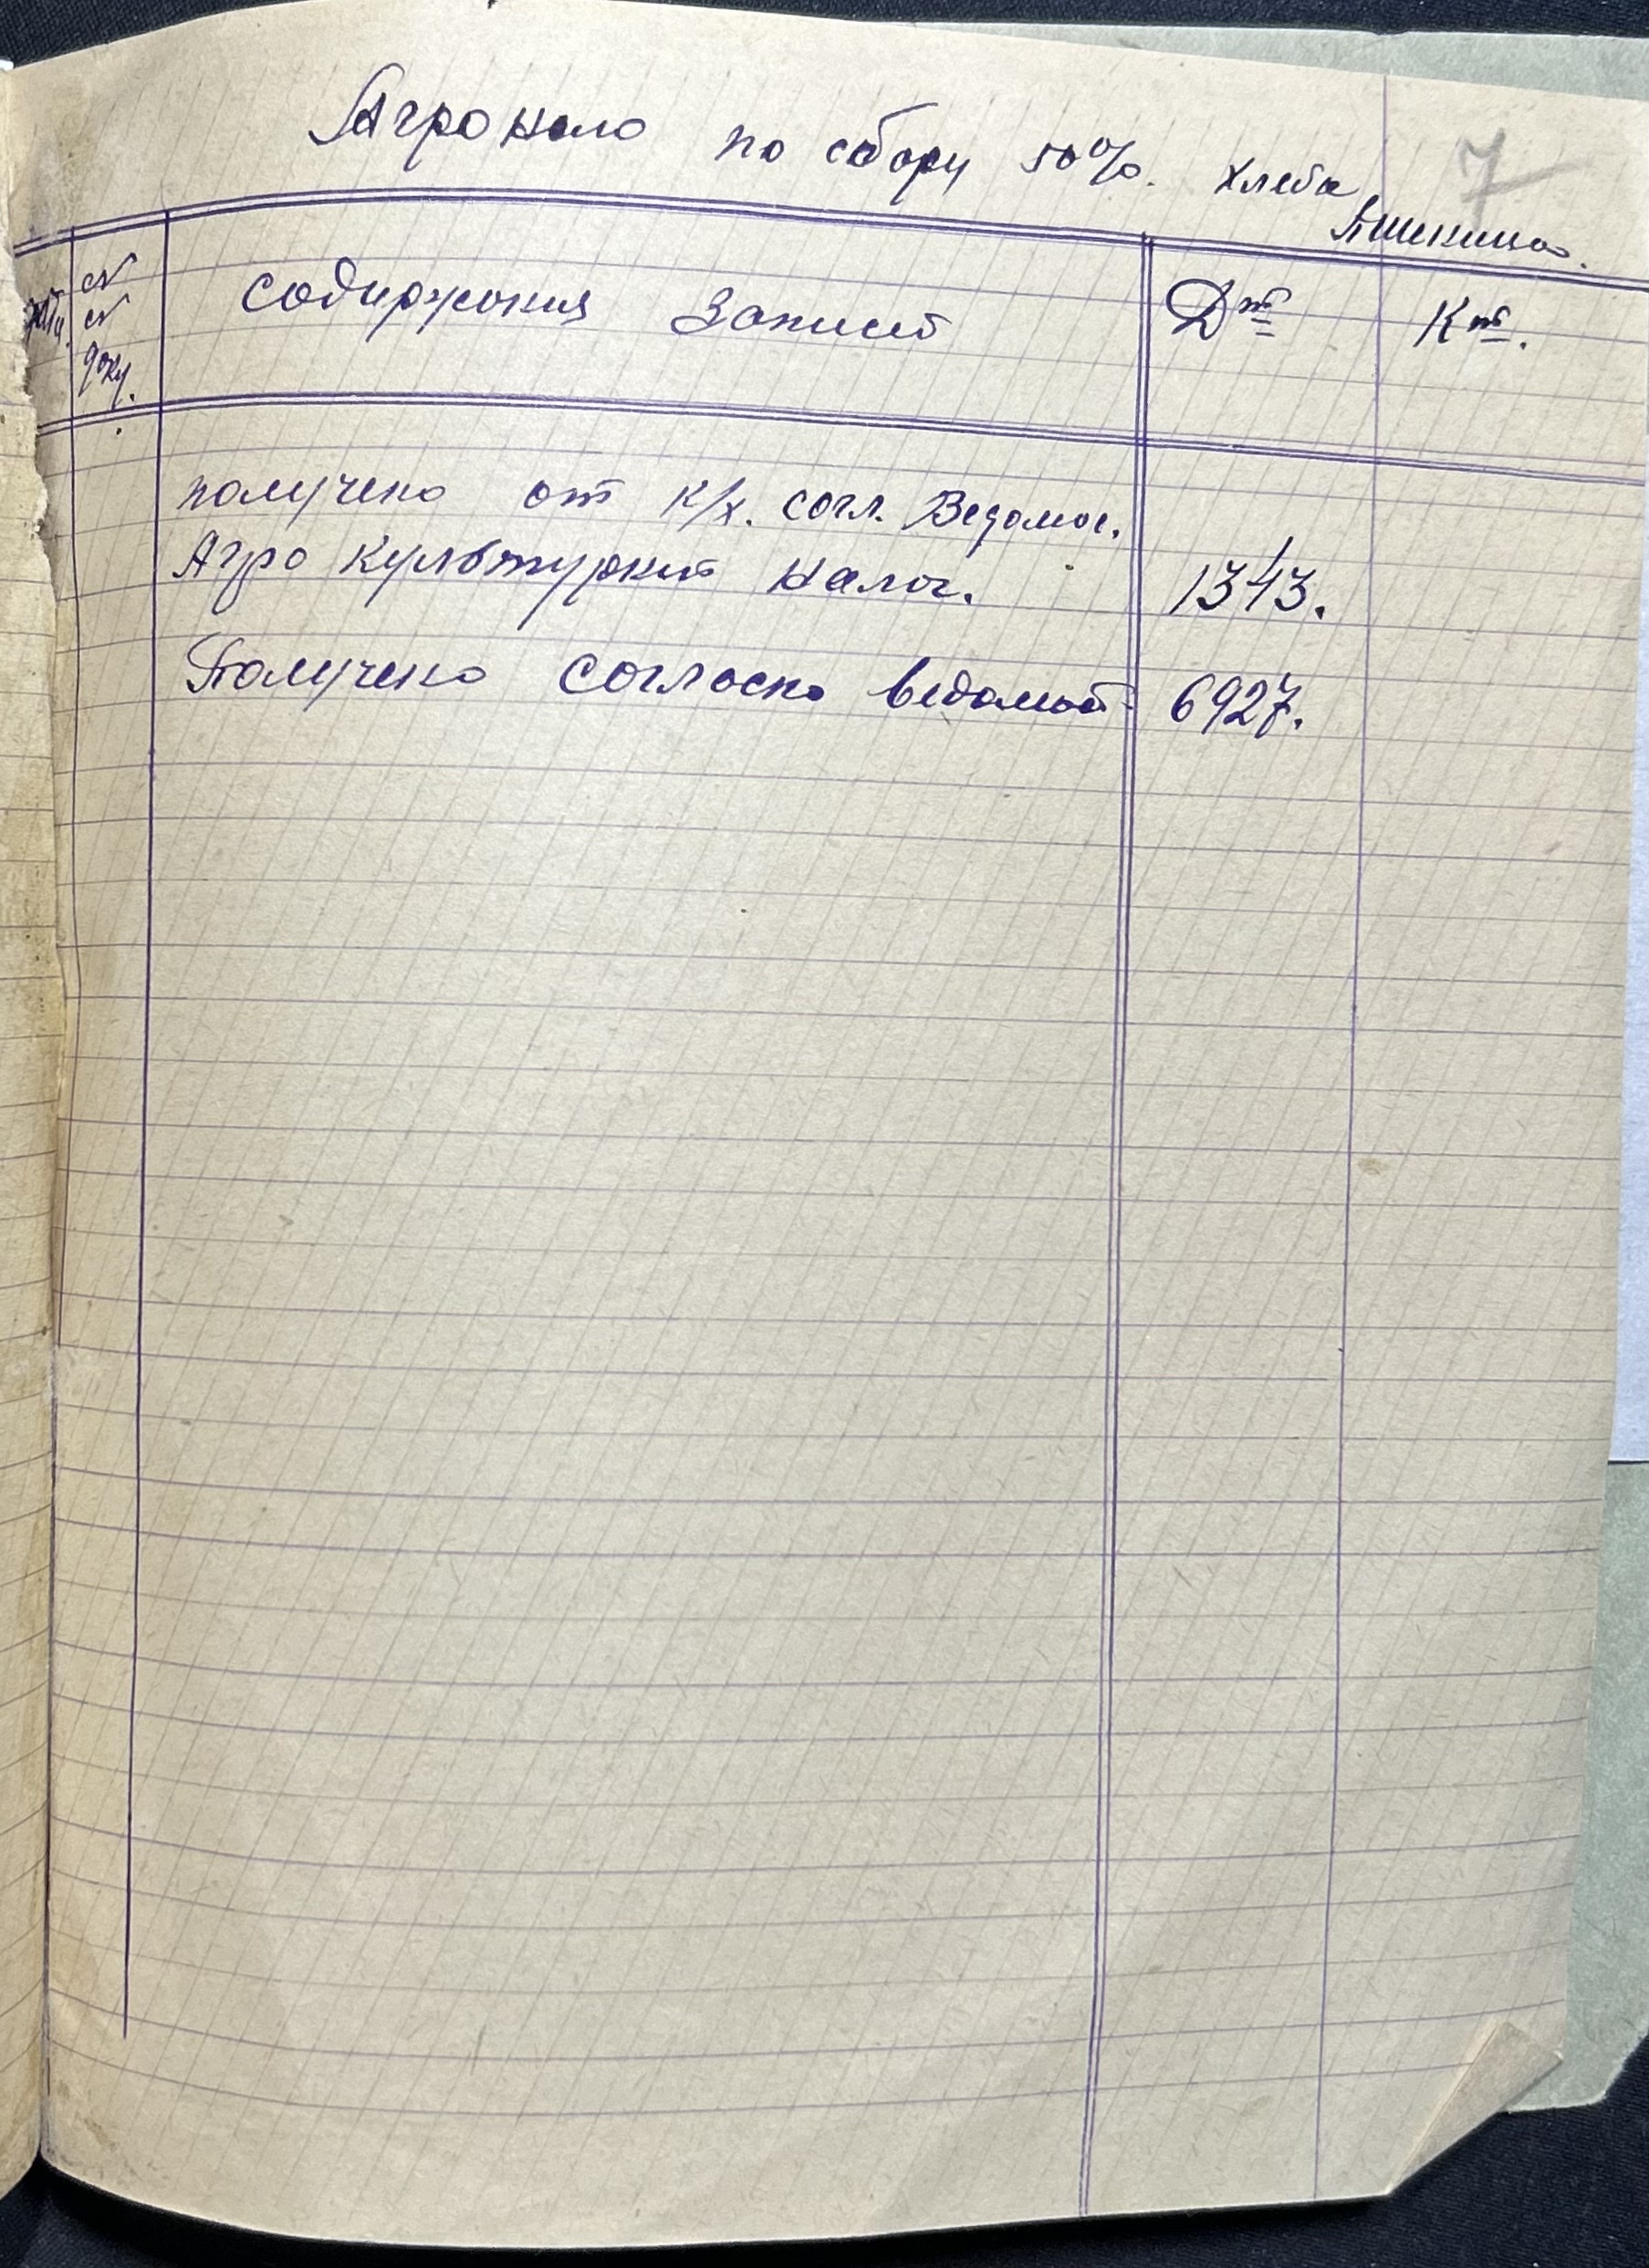 7
Агро нало по сбору 50%. хлеба
Пшеница.
№ № доку. Содержания Записей Дт Кт.
получено от к/х. согл. Ведомос.
Агро Культурний налог. 1343.
Получено согласно ведомост. 6927.